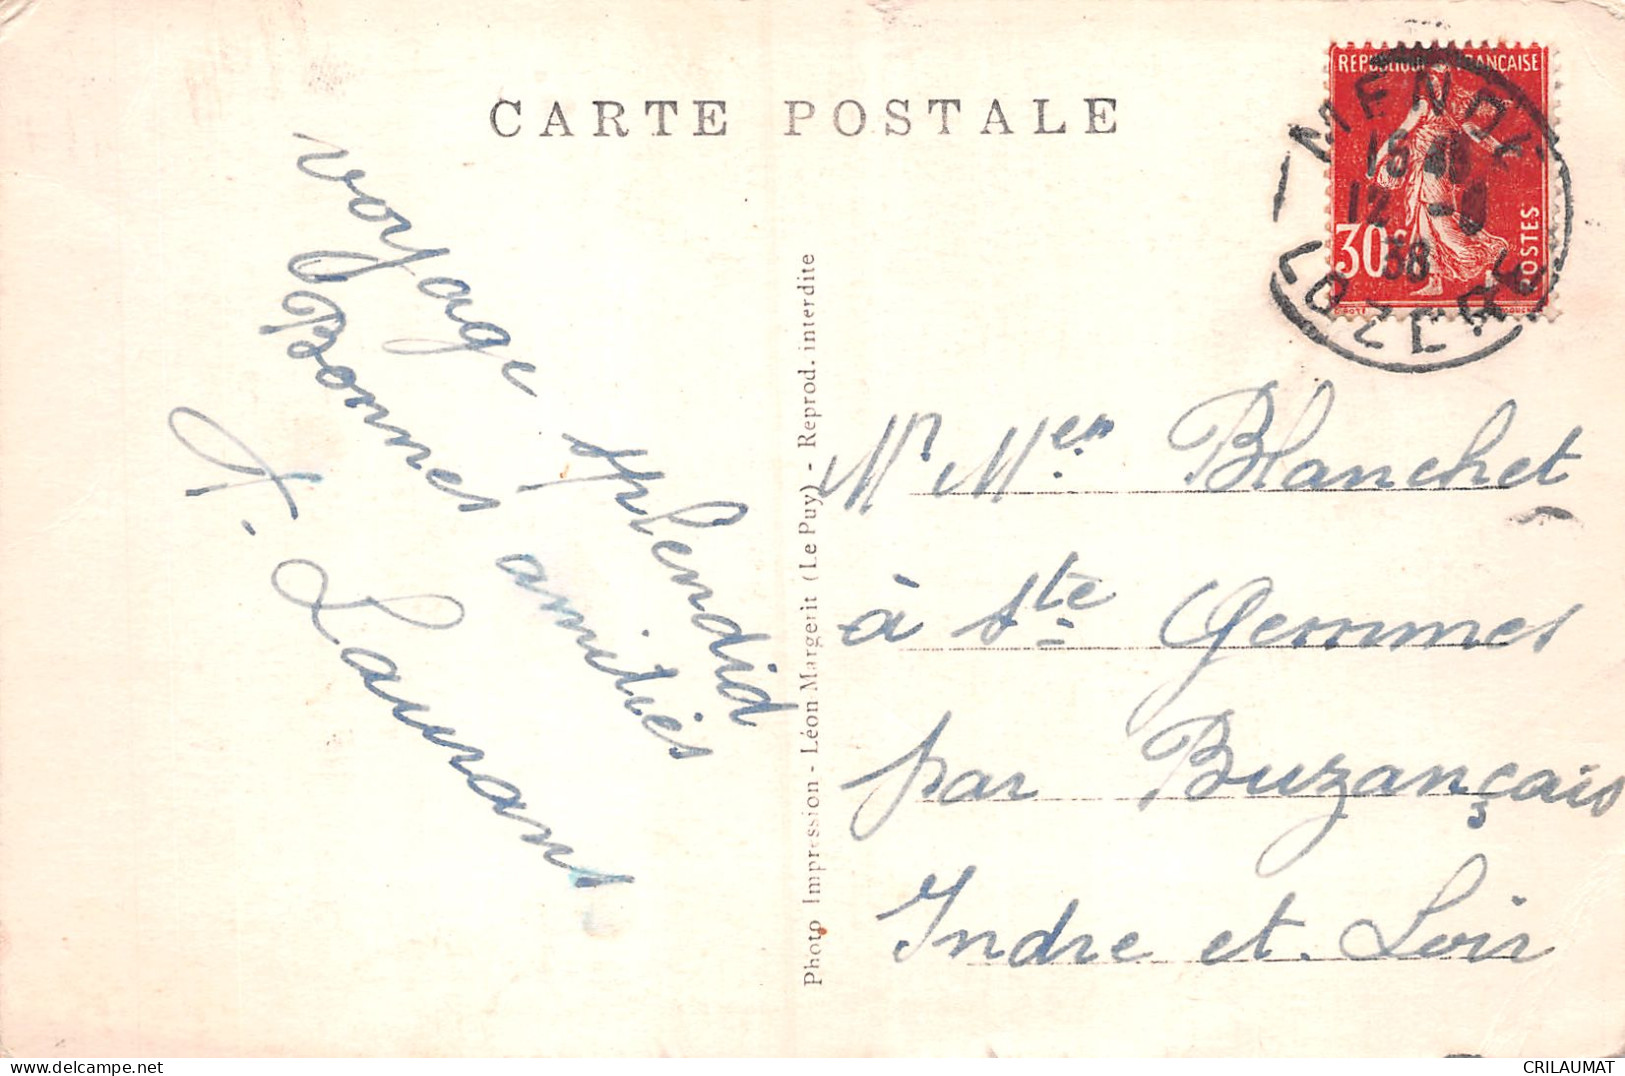 CARTE POSTALE
REPUBLIQUE FRANÇAISE
30c
POSTES
MENDE
15
12 -
38
LOZERE
voyage splendid
Bonnes amitiés
Laurans
Photo Impression - Léon Margerit (Le Puy) - Reprod. interdite
Mr Mer Blanchet
à Ste Gemmes
par Buzançais
Indre et Loir
CRILAUMAT